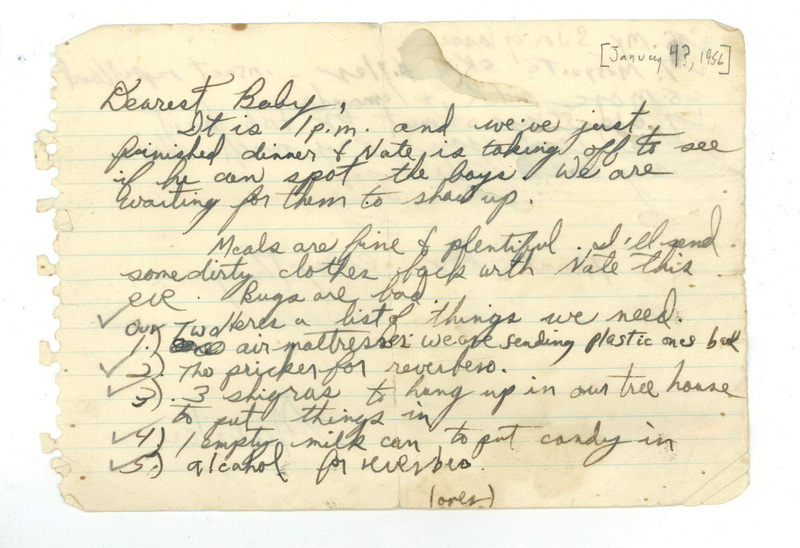 [January 4?, 1956]
Dearest Baby,
It is 1 p.m. and we've just
finished dinner & Nate is taking off to see
if he can spot the boys. We are
waiting for them to show up.
Meals are fine & plentiful. I'll send
some dirty clothes back with Nate this
eve. Bugs are bad.
Heres a list of things we need.
1.) Our Two air mattresses: we are sending plastic ones back
2. The pricker for reverbero.
3). 3 shigras to hang up in our tree house
to put things in
4) 1 empty milk can to put candy in
5.) alcahol for reverbero.
(over)